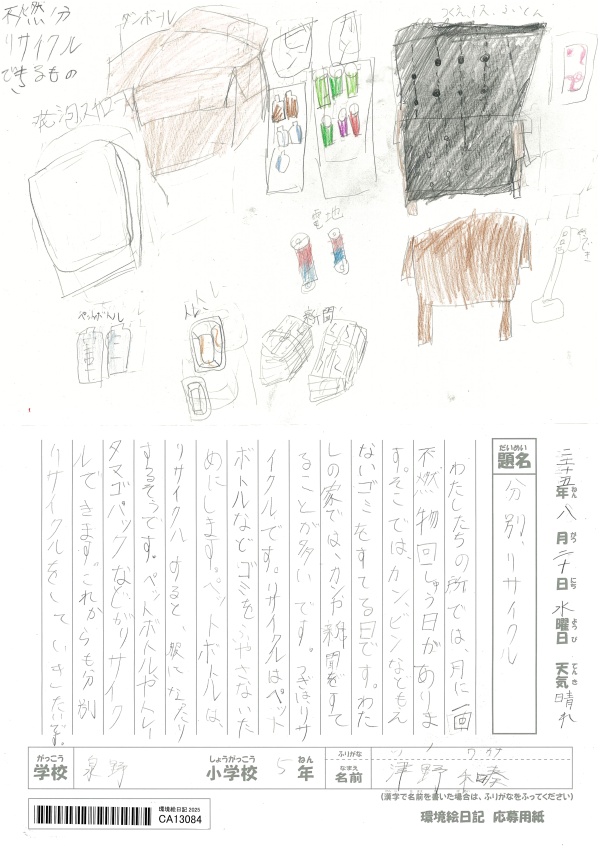 不燃分
リサイクル
できるもの
ダンボール
発泡スチロール
ビン
カン
電地
ペットボトル
トレー
新聞
二千二十五年 八月 二十日 水曜日 天気 晴れ
ねん がつ にち ようび てんき
だいめい
題名
分別、リサイクル
わたしたちの所では、月に一回
不燃物回しゅう日がありま
す。そこでは、カン、ビンなどもん
ないゴミをすてる日です。わた
しの家では、カンや新聞をすて
ることが多いです。つぎはリサ
イクルです。リサイクルはペット
ボトルなどゴミをふやさないた
めにします。ペットボトルは、
リサイクルすると、服になったり
するそうです。ペットボトルやトレー
タマゴパックなどがリサイク
ルできます。これからも分別
リサイクルをしていきたいです。
がっこう しょうがっこう ねん ふりがな
学校 泉野 小学校 5年
なまえ
名前 津野 和奏
(漢字で名前を書いた場合は、ふりがなをふってください)
環境絵日記 2025
CA13084
環境絵日記 応募用紙